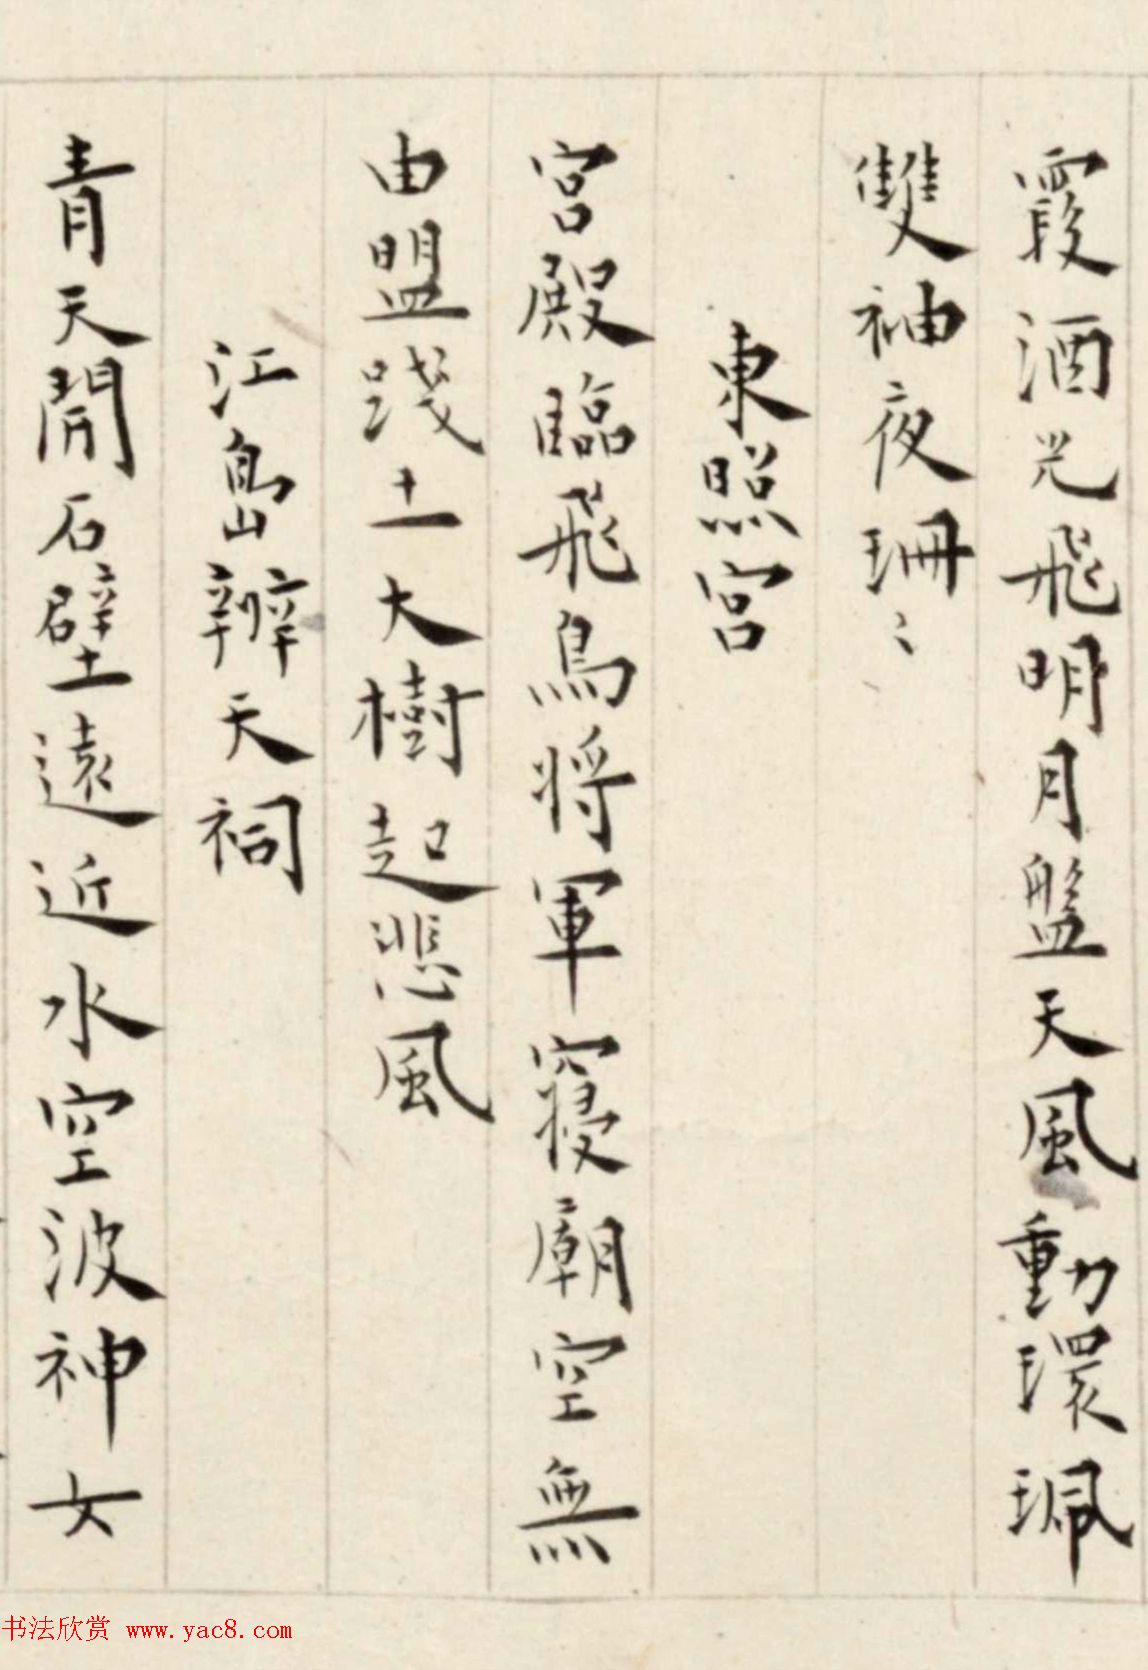 霞酒光飛明月盤天風動環珮
雙袖夜珊〻
東照宮
宮殿臨飛鳥将軍寢廟空無
由盟踐土大樹起悲風
江島辨天祠
青天開石壁遠近水空波神女
书法欣赏 www.yac8.com